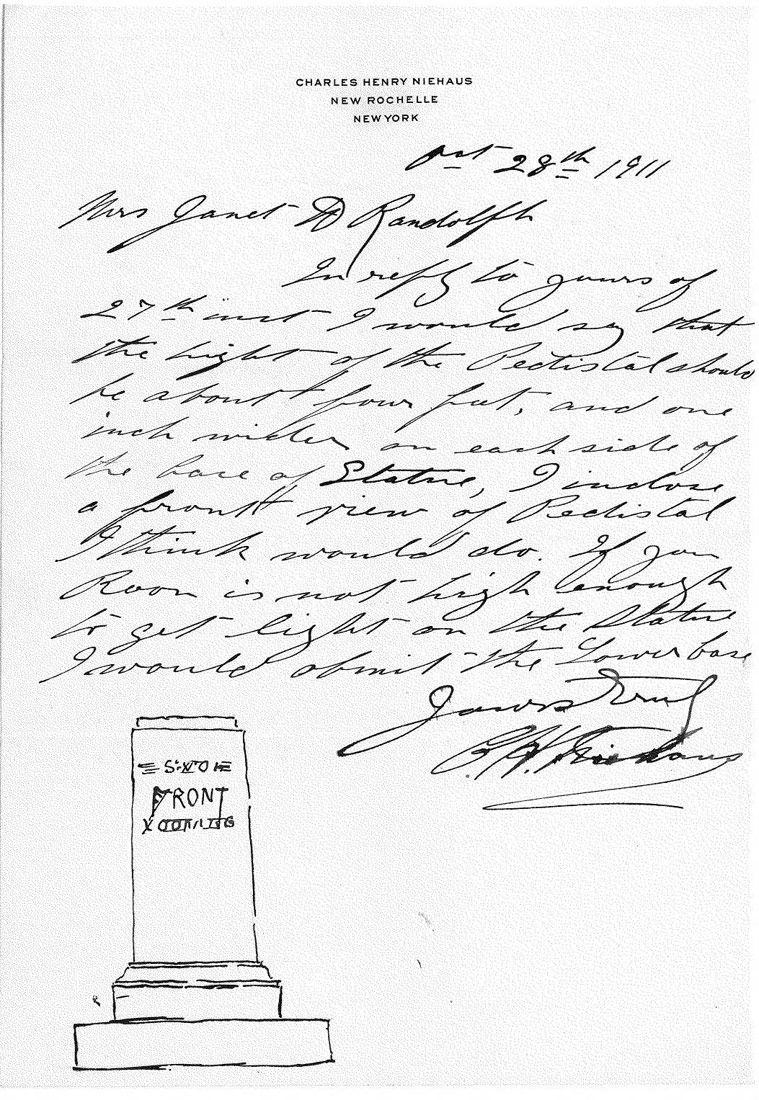 CHARLES HENRY NIEHAUS
NEW ROCHELLE
NEW YORK
Oct 28th 1911
Mrs Janet D Randolph
In reply to yours of
27th inst I would say that
the hight of the Pedistal should
be about four feet, and one
inch wider on each side of
the base of Statue, I inclose
a front view of Pedistal
I think would do. If you
Room is not high enough
to get light on the Statue
I would obmit the Lower base
Yours Truly
C. H. Niehaus
FRONT